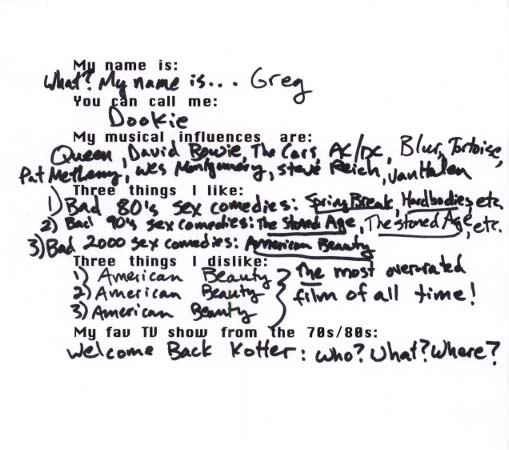 My name is:
What? My name is... Greg
You can call me:
Dookie
My musical influences are:
Queen, David Bowie, The Cars, AC/DC, Blur, Tortoise,
Pat Metheny, Wes Montgomery, Steve Reich, Van Halen
Three things I like:
1) Bad 80's sex comedies: Spring Break, Hardbodies, etc.
2) Bad 90's sex comedies: The Stoned Age, The Stoned Age, etc.
3) Bad 2000 sex comedies: American Beauty
Three things I dislike:
1) American Beauty
2) American Beauty
3) American Beauty
The most overrated
film of all time!
My fav TV show from the 70s/80s:
Welcome Back Kotter: Who? What? Where?